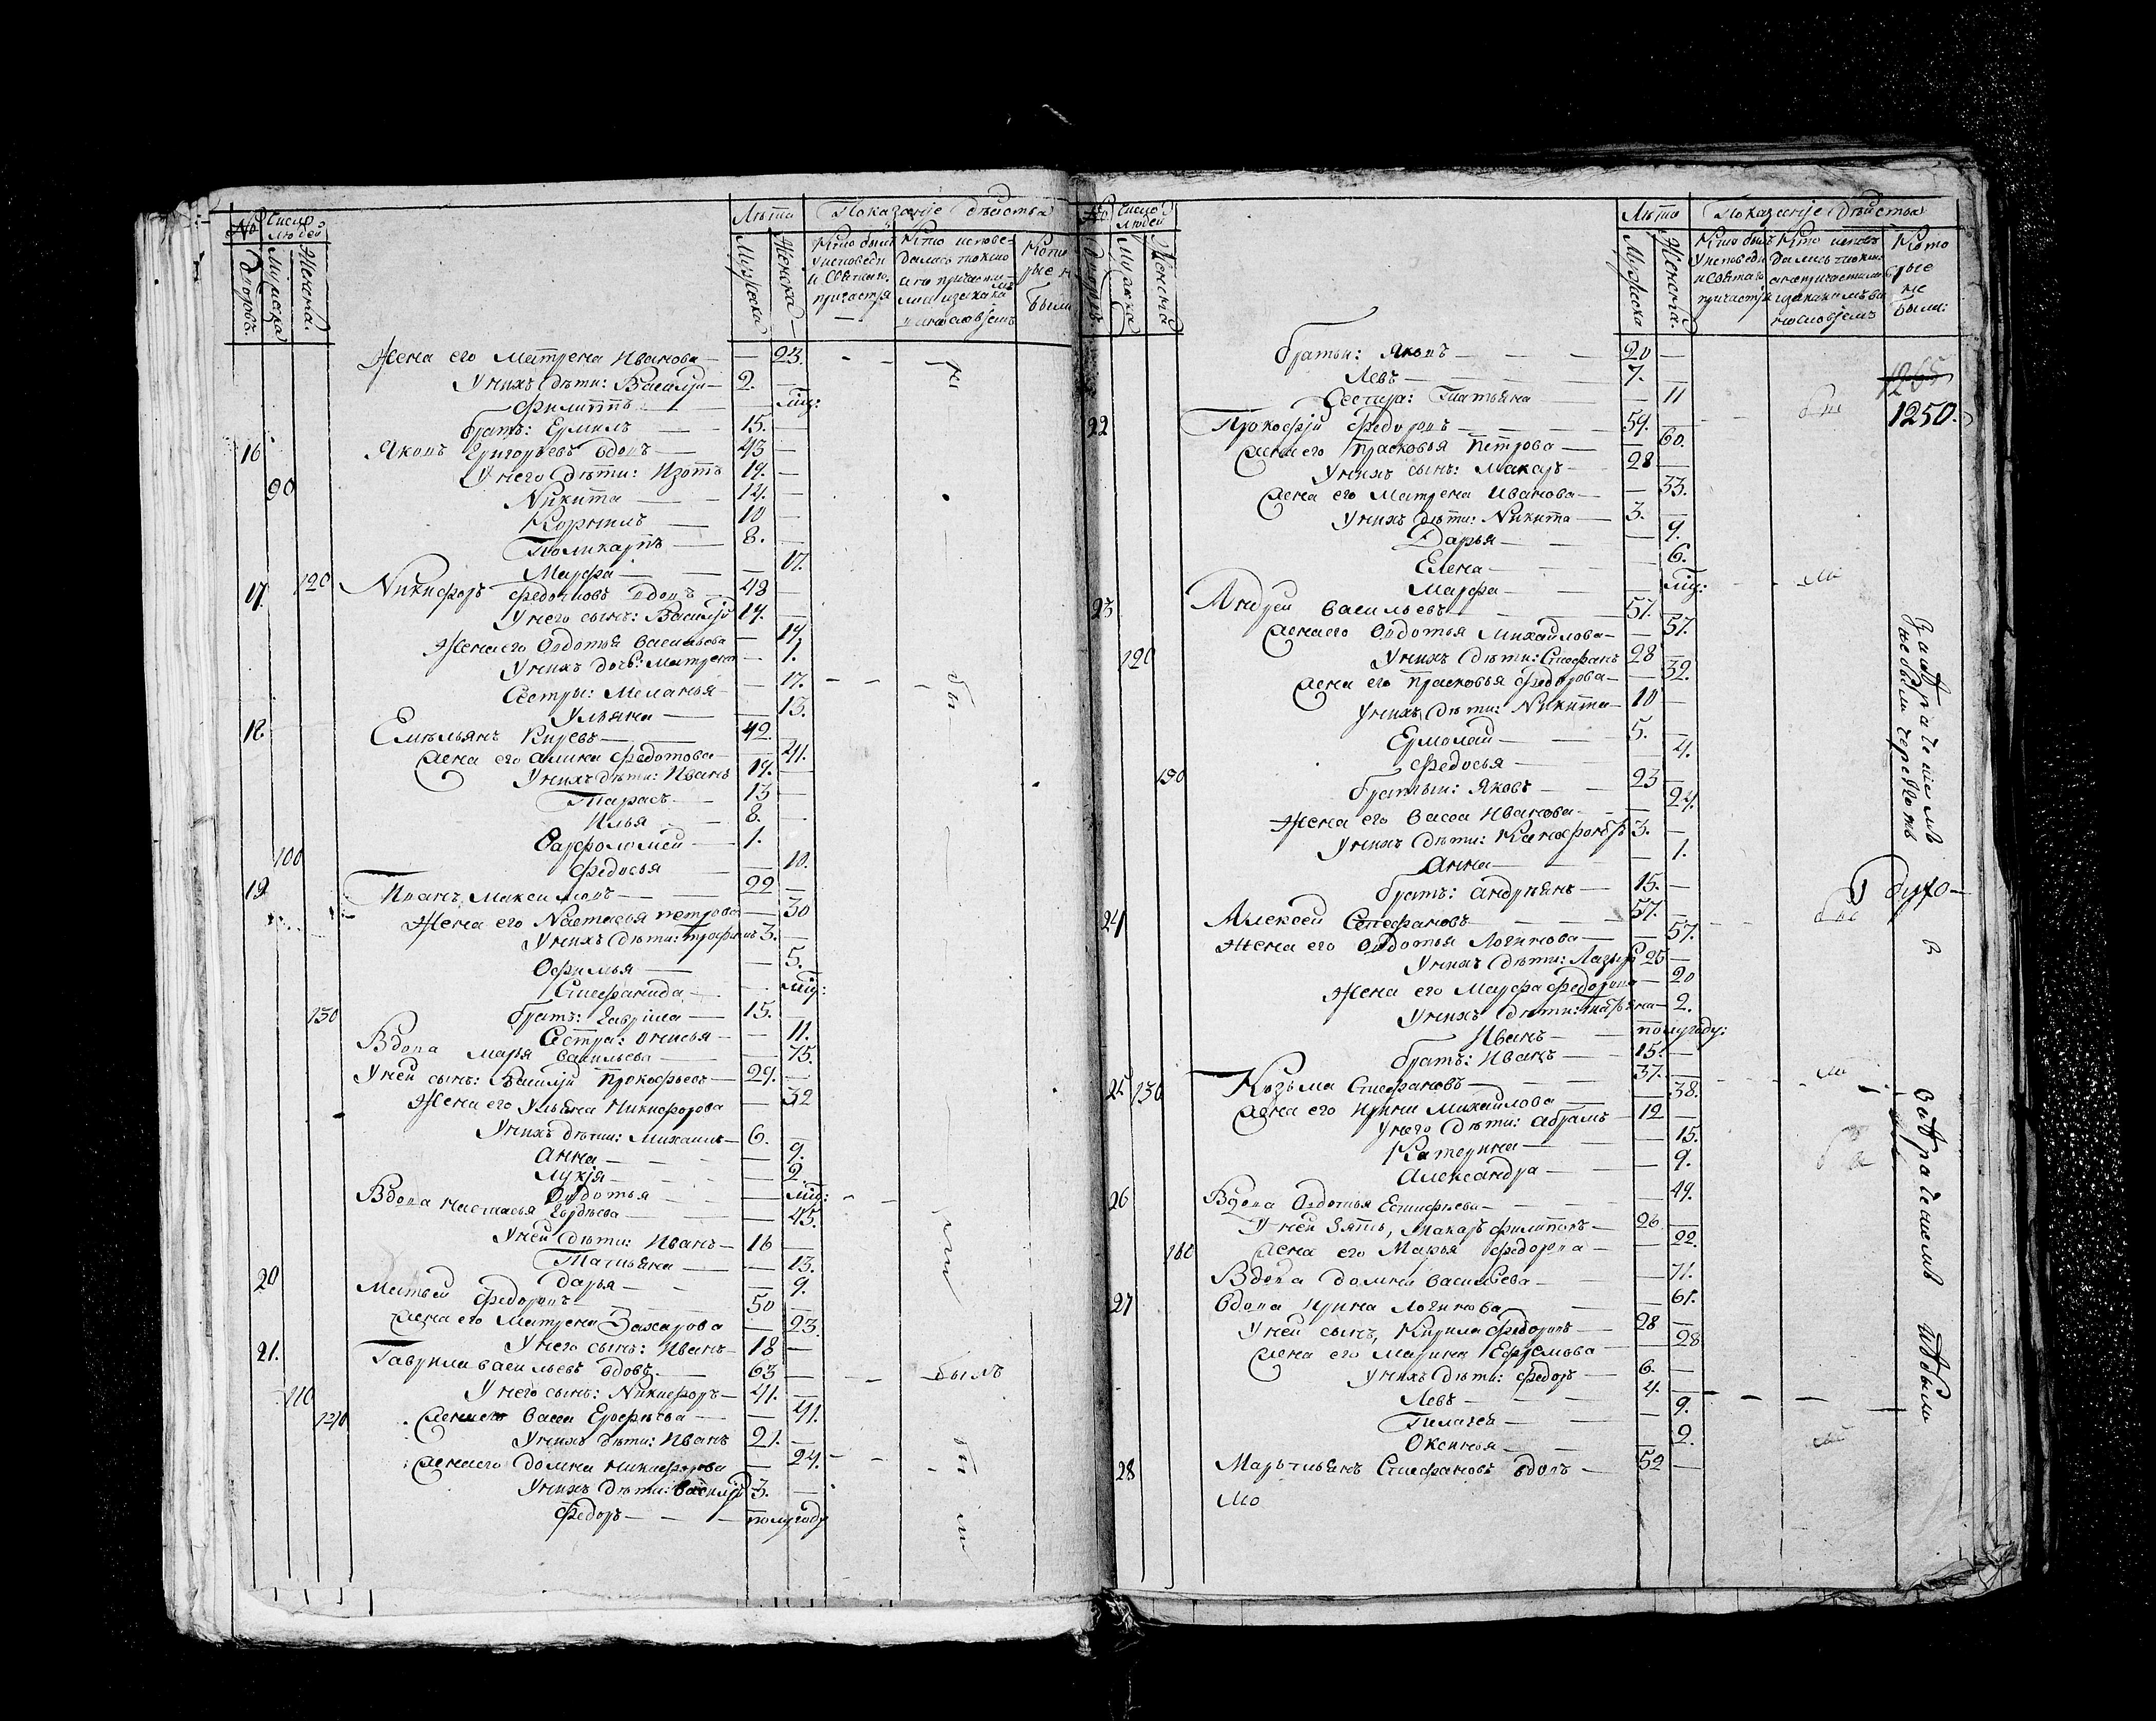 № Число людей Лѣта Показанїе дѣйства
дворовъ. Мужеска Женска. Мужеска Женска Кто былъ у исповеди и Святаго причастїя Кто исповедались токмо а не причастились и за какимъ винословїемъ Которые не были
Жена его Матрена Иванова — 23.
У нихъ дѣти: Василїй 2.
Филиппъ
братъ: Ермилъ 15.
16 Яковъ Григорьевъ вдовъ 43
У него дѣти: Изотъ 19.
90 Никита 14.
Корнилъ 10
Поликарпъ 8.
120 Марфа 17.
17. Никифоръ Федотовъ вдовъ 48
У него сынъ: Василїй 19.
Жена его Овдотья Васильева 19.
У нихъ дочь: Матрена 1.
Сестры: Меланья 17.
Ульяна 13.
18. Емельянъ Киревъ 42.
Жена его Алина Федотова 41.
У нихъ дѣти: Иванъ 19.
Тарасъ 13
Илья 8.
Варфоломей 1.
100 Федосья 10.
19 Иванъ Максимовъ 22
Жена его Настасья Петрова 30
У нихъ дѣти: Трофимъ 3.
Офимья 5.
Стефанида
130 братъ: Гаврила 15.
Сестра: Онисья 11.
Вдова Марья Васильева 75.
У ней сынъ: Василїй Прокофьевъ 29.
Жена его Ульяна Никифорова 32
У нихъ дѣти: Михаилъ 6.
Анна 9.
Лукїя 2.
Овдотья
Вдова Настасья Гордѣева 45.
У ней дѣти: Иванъ 16
Татьяна 13.
Дарья 9.
20 Матвей Федоровъ 50
Жена его Матрена Захарова 23.
У него сынъ: Иванъ 18
21. Гаврила Васильевъ вдовъ 63
110 У него сынъ: Никифоръ 41.
140 Жена его Васса Ерофѣева 41.
У нихъ дѣти: Иванъ 21.
Жена его Домна Никифорова 24.
У нихъ дѣти: Василїй 3.
Федоръ полугоду
№ Число людей Лѣта Показанїе дѣйства
дворовъ Мужеска Женска Мужеска Женска. Кто былъ у исповеди и Святаго причастїя Кто исповедались токмо а не причастились и за какимъ винословїемъ Которые не были:
братьи: Яковъ 20
Левъ 7.
Сестра: Татьяна 11
1265
1250.
22 Прокофїй Федоровъ 59.
Жена его Прасковья Петрова 60.
У нихъ сынъ: Макаръ 28
Жена его Матрена Иванова 33.
У нихъ дѣти: Никита 3.
Дарья 9.
Елена 6.
Марфа
23 Андрей Васильевъ 57.
Жена его Овдотья Михайлова 57.
120 У нихъ дѣти: Стефанъ 28
Жена его Прасковья Федорова 32.
У нихъ дѣти: Никита 10
Ермолай 5.
Федосья 4.
150 братьи: Яковъ 23
Жена его Васса Иванова 24.
У нихъ дѣти: 3.
Анна 1.
братъ: Андреянъ 15.
24 Алексей Стефановъ 57.
Жена его Овдотья Логинова 57.
У нихъ дѣти: Лазарь 25
Жена его Марфа Федорова 20
У нихъ дѣти: Татьяна 2.
Иванъ полугоду:
братъ: Иванъ 15.
25 130 Козьма Стефановъ 37.
Жена его Ирина Михайлова 38.
У него дѣти: Абрамъ 12
Катерина 15.
Александра 9.
26 Вдова Овдотья Естифѣева 49.
У ней зять, Макаръ Филиповъ 26
160 Жена его Марья Федорова 22.
Вдова Домна Васильева 71.
27 Вдова Ирина Логинова 61.
У ней сынъ, Кирила Федоровъ 28
Жена его Марина Ефремова 28
У нихъ дѣти: Федоръ 6.
Левъ 4.
Пелагея 9.
Оксинья 2.
28 Мартиьянъ Стефановъ вдовъ 52
Мо